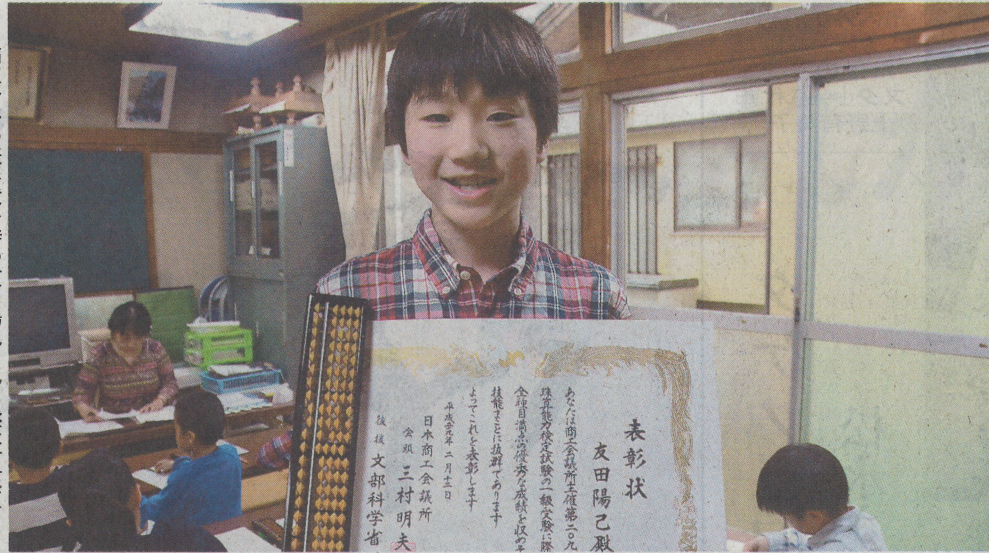 表彰状
友田陽己殿
あなたは商工会議所主催第二〇九
珠算能力検定試験の一級受験に際
全種目満点の優秀な成績を収めそ
技能まことに抜群であります
よってこれを表彰します
平成二十九年二月十二日
日本商工会議所
会頭 三村明夫
後援 文部科学省